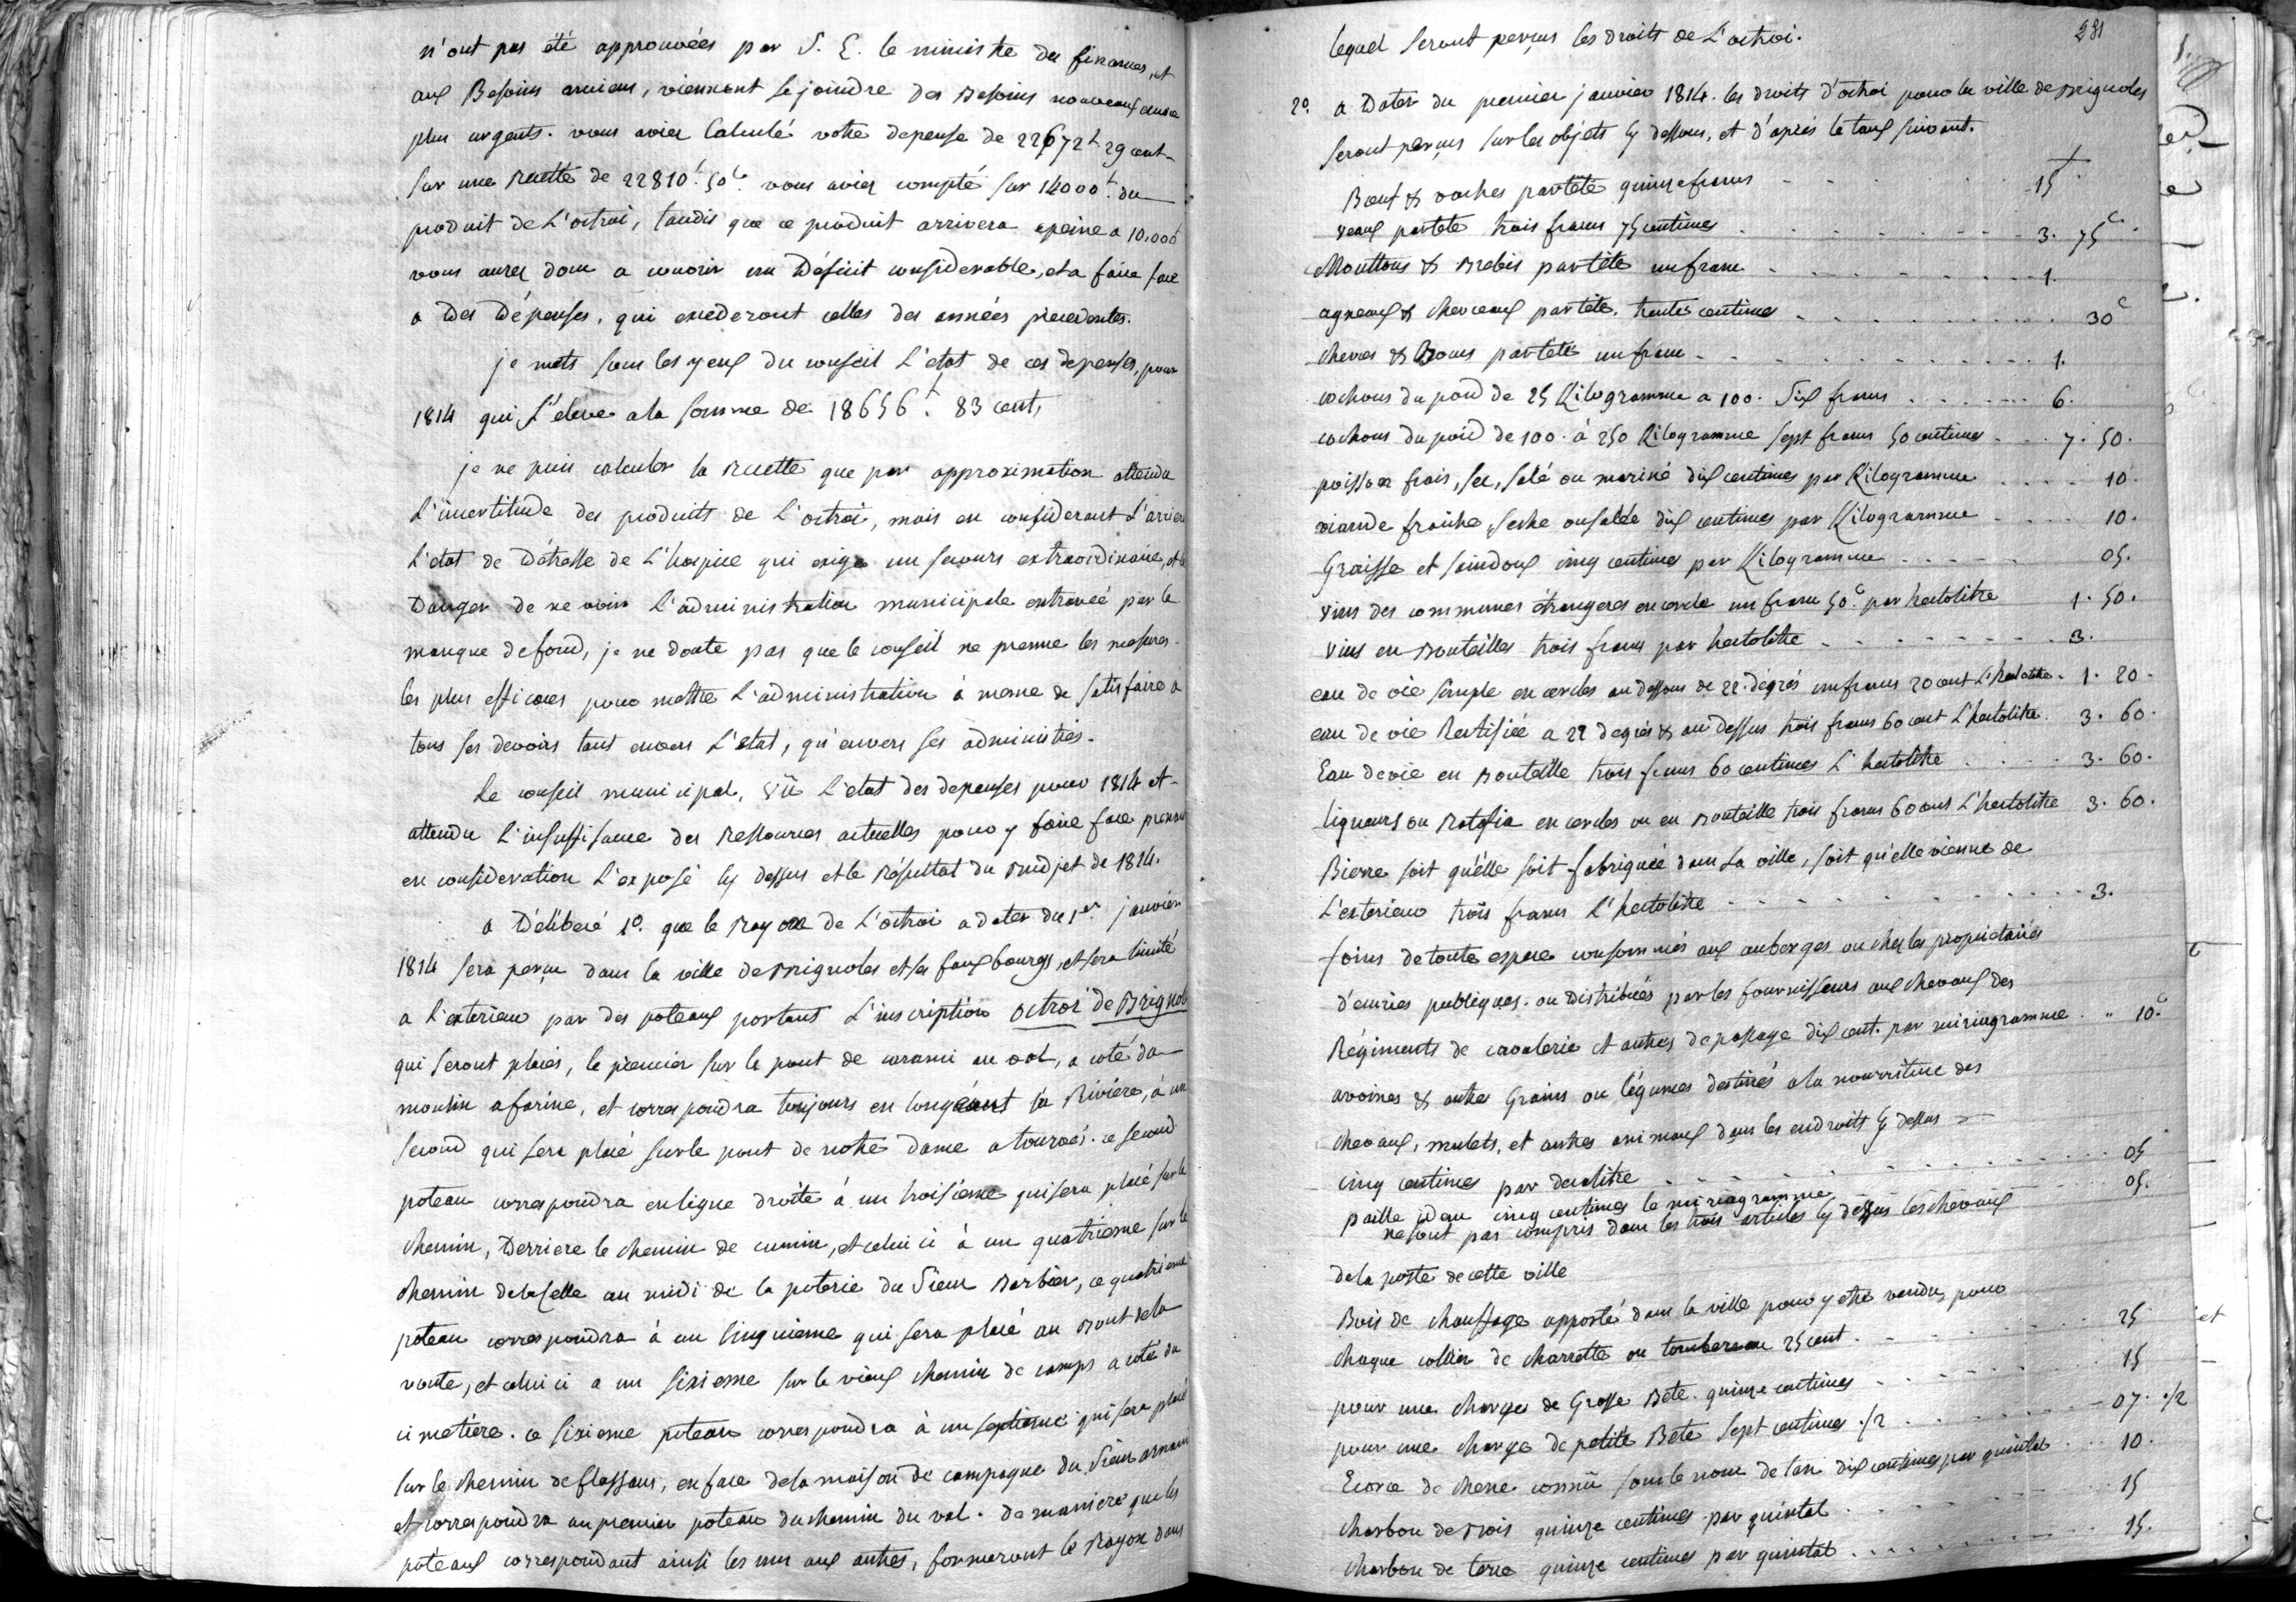 n'ont pas été approuvées par S. E. le ministre des finances, et
aux Besoins anciens, viennent se joindre des Besoins nouveaux encore
plus urgents. vous aviez Calculé votre depense de 22672 f 29 cent.
sur une Recette de 22810 f. 50 c. vous aviez compté sur 14000 f. du
produit de L'octroi, tandis que ce produit arrivera apeine a 10,000 f
vous aurez donc a couvrir un Déficit considerable, et a faire face
a Des Dépenses, qui excederont celles des années precedentes.
je mets sous les yeux du conseil L'etat de ces depenses, pour
1814 qui S'éleve ala somme de 18656 f. 83 cent,
je ne puis calculer la Recette que par approximation attendu
L'incertitude des produits de L'octroi, mais en considerant L'arriere
L'etat de Détresse de L'hospice qui exige un secours extraordinaire, et le
Danger de ne voir L'administration municipale entravée par le
manque defond, je ne doute pas que le conseil ne prenne les mesures
les plus efficaces pour mettre L'administration à meme de satisfaire a
tous ses devoirs tant envers L'etat, qu'envers ses administrés.
Le conseil municipal, vû L'etat des depenses pour 1814 et
attendu L'insuffisance des Ressources actuelles pour y faire face prenant
en consideration L'exposé cy dessus et le Résultat du Budjet de 1814.
a Déliberé 1º. que le Rayon de L'octroi a dater du 1er. janvier
1814 sera perçu dans la ville de Brignoles et ses fauxbourgs, et sera limité
a L'exterieur par des poteaux portant L'inscription octroi de Brignoles
qui seront placés, le premier sur le pont de carami au val, a coté du
moulin afarine, et correspondra toujours en longeant la Riviere, à un
second qui sera placé sur le pont de notre dame a tourves. ce second
poteau correspondra en ligne droite à un troisieme qui sera placé sur le
chemin, Derriere le chemin de cumin, et celui ci à un quatrieme sur le
chemin delaselle au midi de la poterie du Sieur Barbier, ce quatrieme
poteau correspondra à un Cinquieme qui sera placé au Bout dela
route, et celui ci a un sixieme sur le vieux chemin de camps a coté du
cimetiere. ce sixieme poteau correspondra à un septieme qui sera placé
sur le chemin deflassans, en face dela maison de campagne du Sieur
et correspondra au premier poteau du chemin du val. De maniere que les
poteaux correspondant ainsi les uns aux autres, formeront le Rayon dans
281
lequel seront perçus les droits de L'octroi.
2º. a Dater du premier janvier 1814. les droits d'octroi pour la ville de Brignoles
seront perçus sur les objets cy dessous, et d'après le taux suivant.
Bœuf & vaches partête quinze francs 15 f
veaux partete trois francs 75 centimes 3. 75 c
Mouttons & Brebis partête un franc 1.
agneaux & chevreaux par tête, trente centimes 30 c
chevres & Boucs partete un franc 1.
cochons du poid de 25 Kilogramme a 100. Six francs 6.
cochons du poid de 100. à 250 Kilogramme sept francs 50 centimes 7. 50.
poisson frais, sec, salé ou mariné dix centimes par Kilogramme 10.
viande fraiche seche ousalée dix centimes par Kilogramme 10.
Graisse et saindoux cinq centimes par Kilogramme 05.
vins des communes étrangeres en cercle un franc 50 c. par hectolitre 1. 50.
vins en Bouteilles trois francs par hectolitre 3.
eau de vie simple en cercles au dessous de 22. dégrés un francs 20 cent L'hectolitre. 1. 20.
eau de vie Rectifiée a 22 degrés & au dessus trois francs 60 cent L'hectolitre. 3. 60.
Eau de vie en Bouteille trois francs 60 centimes L'hectolitre 3. 60.
liqueurs ou Ratafia en cercles ou en Bouteille trois francs 60 cens L'hectolitre 3. 60.
Bierre soit qu'elle soit fabriquée dans la ville, soit qu'elle vienne de
L'exterieur trois francs L'hectolitre 3.
foins de toute espece consommés aux auberges ou chez les propriétaires
d'ecuries publiques. ou Distribués par les fournisseurs aux chevaux des
Régiments de cavalerie et autres de passage dix cent. par miriagramme " 10 c
avoines & autres Grains ou légumes destinés ala nourriture des
chevaux, mulets, et autres animaux dans les endroits cy dessus
cinq centimes par decalitre 05
paille idem cinq centimes le miriagramme 05.
ne sont pas compris dans les trois articles cy dessus les chevaux
dela poste de cette ville
Bois de chauffage apporté dans la ville pour y etre vendu, pour
chaque collier de charrette ou tombereau 25 cent. 25
pour une charge de Grosse Bete. quinze centimes 15
pour une charge de petite Bete sept centimes ./2 07. ./2
Ecorce de chene connu sous le nom de tan dix centimes par quintal 10.
charbon de Bois quinze centimes par quintal 15
charbon de terre quinze centimes par quintal 15.